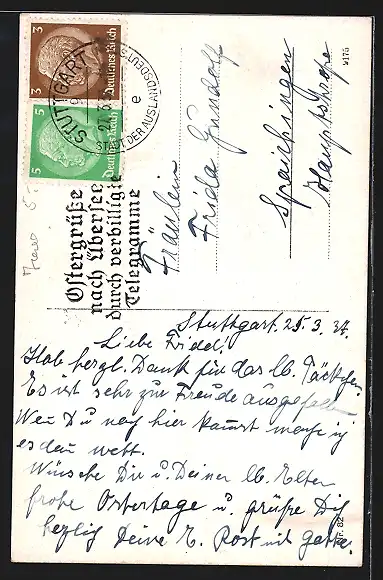 3
3
Deutsches Reich
5
5
Deutsches Reich
STUTTGART
27.3.
STADT DER AUSLANDSDEUTSCHEN
e
Ostergrüße
nach Übersee
durch verbilligte
Telegramme
9175
Fräulein
Frida Gundolf
Spaichingen
Hauptstrasse
Stuttgart. 25.3.37.
Liebe Fridel!
Hab herzl. Dank für das lb. Päckchen.
Es ist sehr zur Freude ausgefallen
Wen Du nach hier kommst mache ich
es dan wett.
Wünsche Dir u. Deiner lb. Elter
frohe Ostertage u. grüße Dich
herzlich Deine E. Rost mit Gatte.